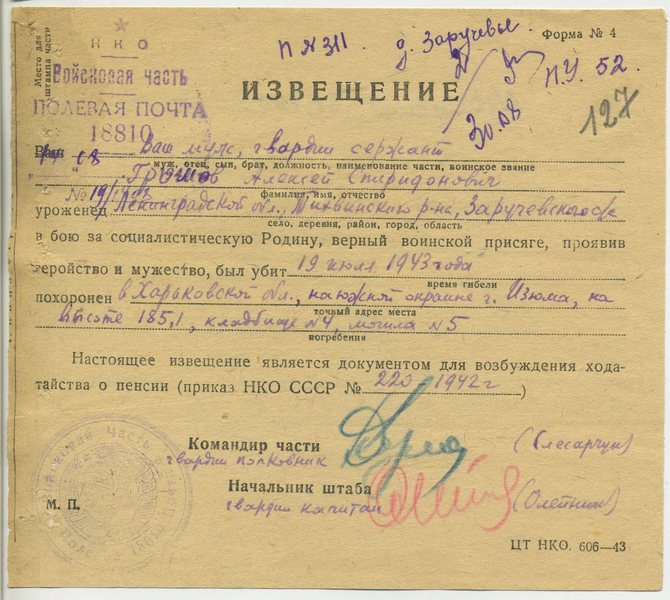 Место для штампа части
НКО
Войсковая часть
ПОЛЕВАЯ ПОЧТА
18810
П № 311
д. Заручевье
Форма № 4
П.У. 52.
ИЗВЕЩЕНИЕ
30.08
127
Ваш Ваш муж, гвардии сержант
муж, отец, сын, брат, должность, наименование части, воинское звание
08
Алексей Спиридонович
№
фамилия, имя, отчество
уроженец Ленинградской обл., Тихвинского р-на, Заручевского с/с
село, деревня, район, город, область
в бою за социалистическую Родину, верный воинской присяге, проявив
геройство и мужество, был убит 19 июля 1943 года
время гибели
похоронен в Харьковской обл., на южной окраине г. Изюма, на
точный адрес места
высоте 185,1, кладбище №4, могила №5
погребения
Настоящее извещение является документом для возбуждения хода-
тайства о пенсии (приказ НКО СССР № 220 - 1942 г)
Командир части
(Слесарчук)
гвардии полковник
Начальник штаба
М. П.
гвардии капитан
(Олейник)
ЦТ НКО. 606—43